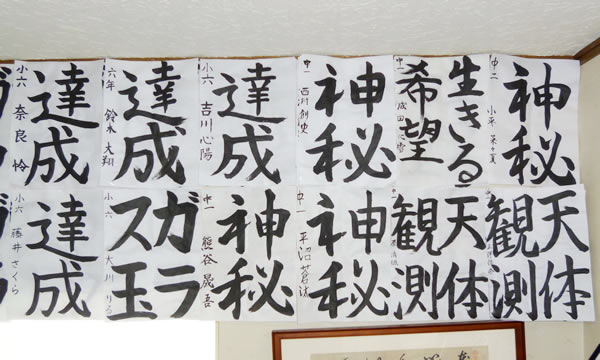 神秘
中二 小平
生きる
希望
中一 成田
神秘
中一 西川創史
達成
小六 吉川心陽
達成
六年 鈴木大翔
達成
小六 奈良怜
天体
観測
天体
観測
中一
神秘
中一 平沼
神秘
中一 熊谷晟吾
ガラ
ス玉
小六 大川りる
達成
小六 藤井さくら